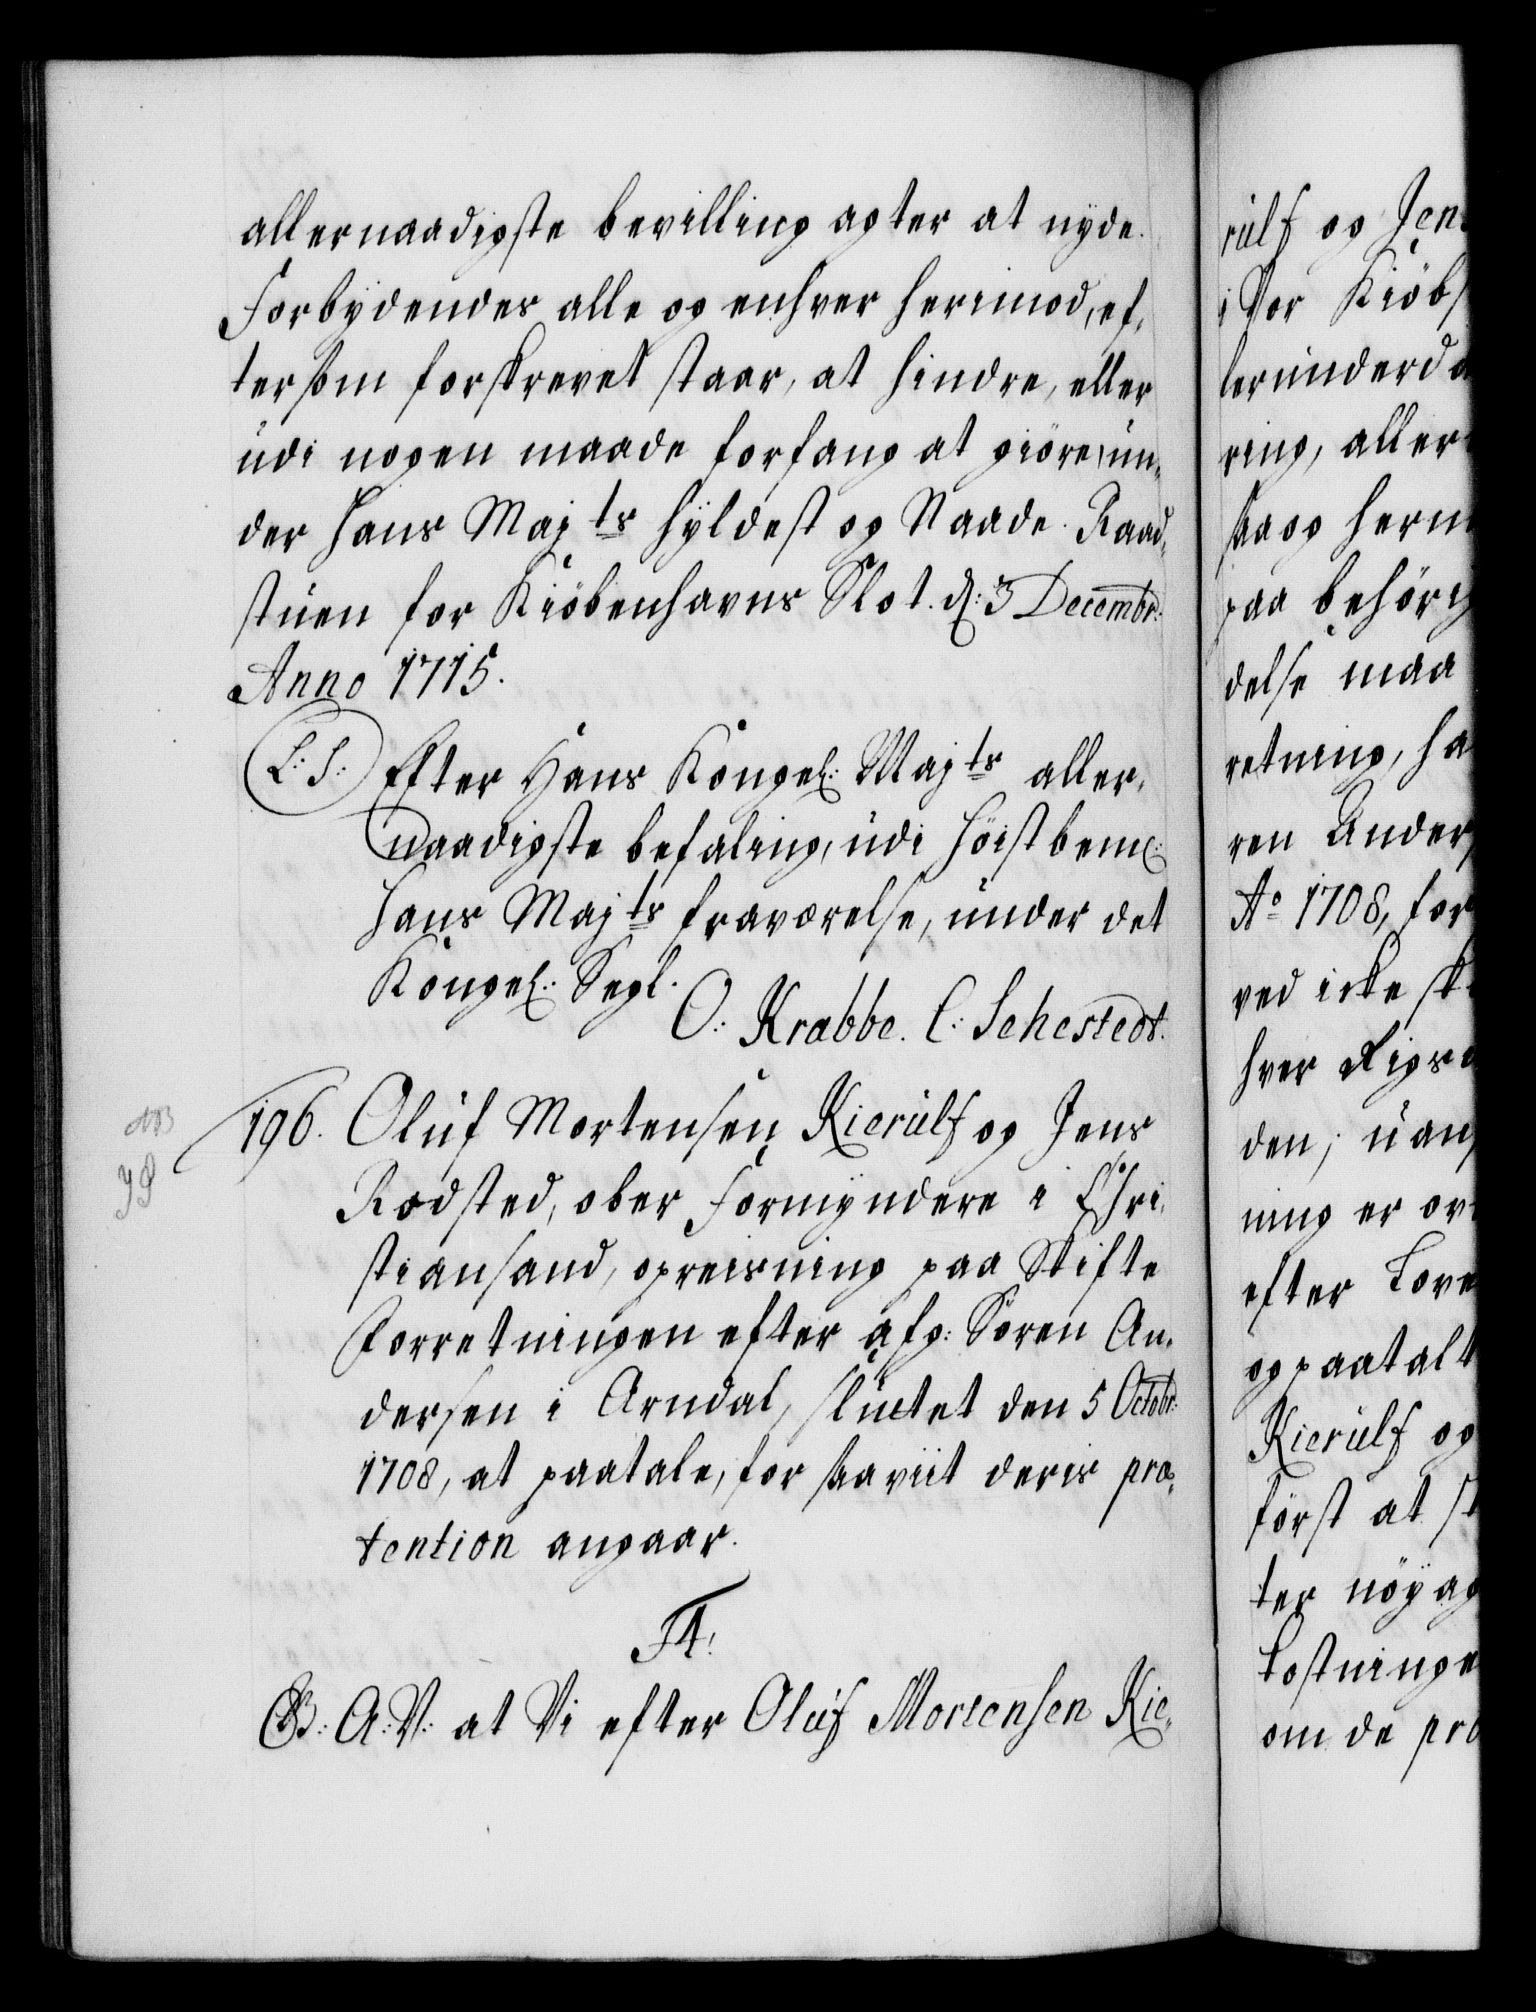 allernaadigste bevilling agter at nyde.
Forbydendes alle og enhver herimod, ef,
tersom forskrevet staar, at hindre, eller
udi nogen maade forfang at giöre, un,
der Hans Majts Hyldest og Naade. Raad,
stuen for Kiöbenhavns Slot. d: 3 Decembr:
Anno 1715.
L: S: Efter Hans Kongel: Majts aller,
naadigste befaling, udi Höistbem:
Hans Majts fraværelse, under det
Kongel: Segl.
O: Krabbe. C: Sehestedt.
NB
196. Oluf Mortensen Kierulf og Jens
Rodsted, ober Formyndere i Chri,
stiansand, opreisning paa Skifte
Forretningen efter afg: Sören An,
dersen i Arndal, sluttet den 5 Octobr:
1708, at paatale, for saaviit deris præ,
tention angaar.
F4.
G: A: V: at Vi efter Oluf Mortensen Kie,
rulf og Jens
i Vor Kiöbs
lerunderda
ring, aller
saa og herm
paa behöri
delse maa
retning, ha
ren Anders
Ao 1708, for
ved icke sk
hver Rigsd
den, uans
ning er ov
efter Love
og paatalt
Kierulf og
först at st
ter nöyag
kostninge
om de pro